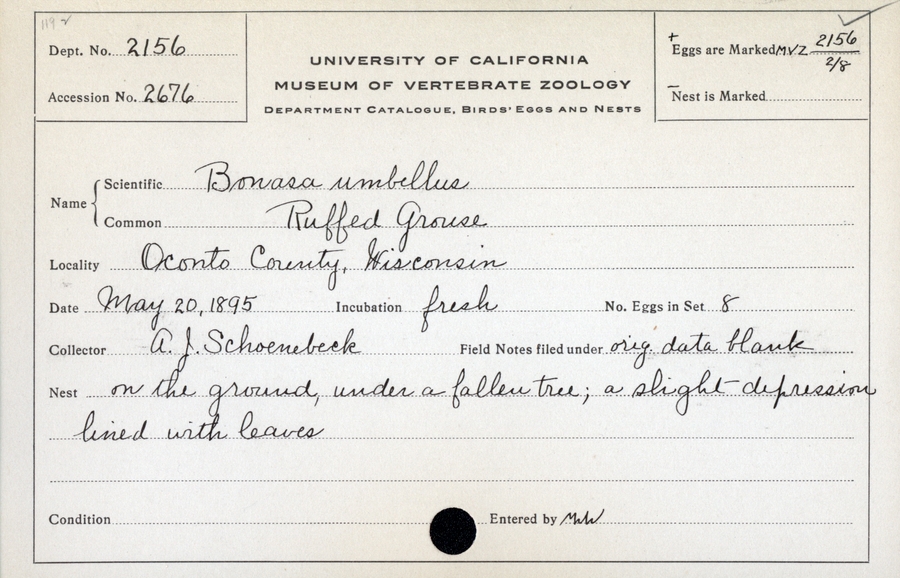 119
Dept. No. 2156
Accession No. 2676
UNIVERSITY OF CALIFORNIA
MUSEUM OF VERTEBRATE ZOOLOGY
DEPARTMENT CATALOGUE, BIRDS' EGGS AND NESTS
+
Eggs are Marked MVZ 2156
2/8
–
Nest is Marked
Name
Scientific Bonasa umbellus
Common Ruffed Grouse
Locality Oconto County, Wisconsin
Date May 20, 1895 Incubation fresh No. Eggs in Set 8
Collector A. J. Schoenebeck Field Notes filed under orig. data blank
Nest on the ground, under a fallen tree; a slight depression
lined with leaves
Condition Entered by